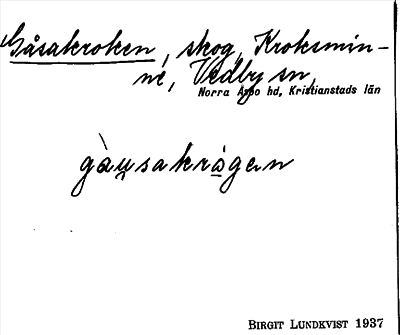 Gåsakroken, skog, Kroksmin-
ne, Vedby sn,
Norra Åsbo hd, Kristianstads län
gàu̯sakrågen
BIRGIT LUNDKVIST 1937